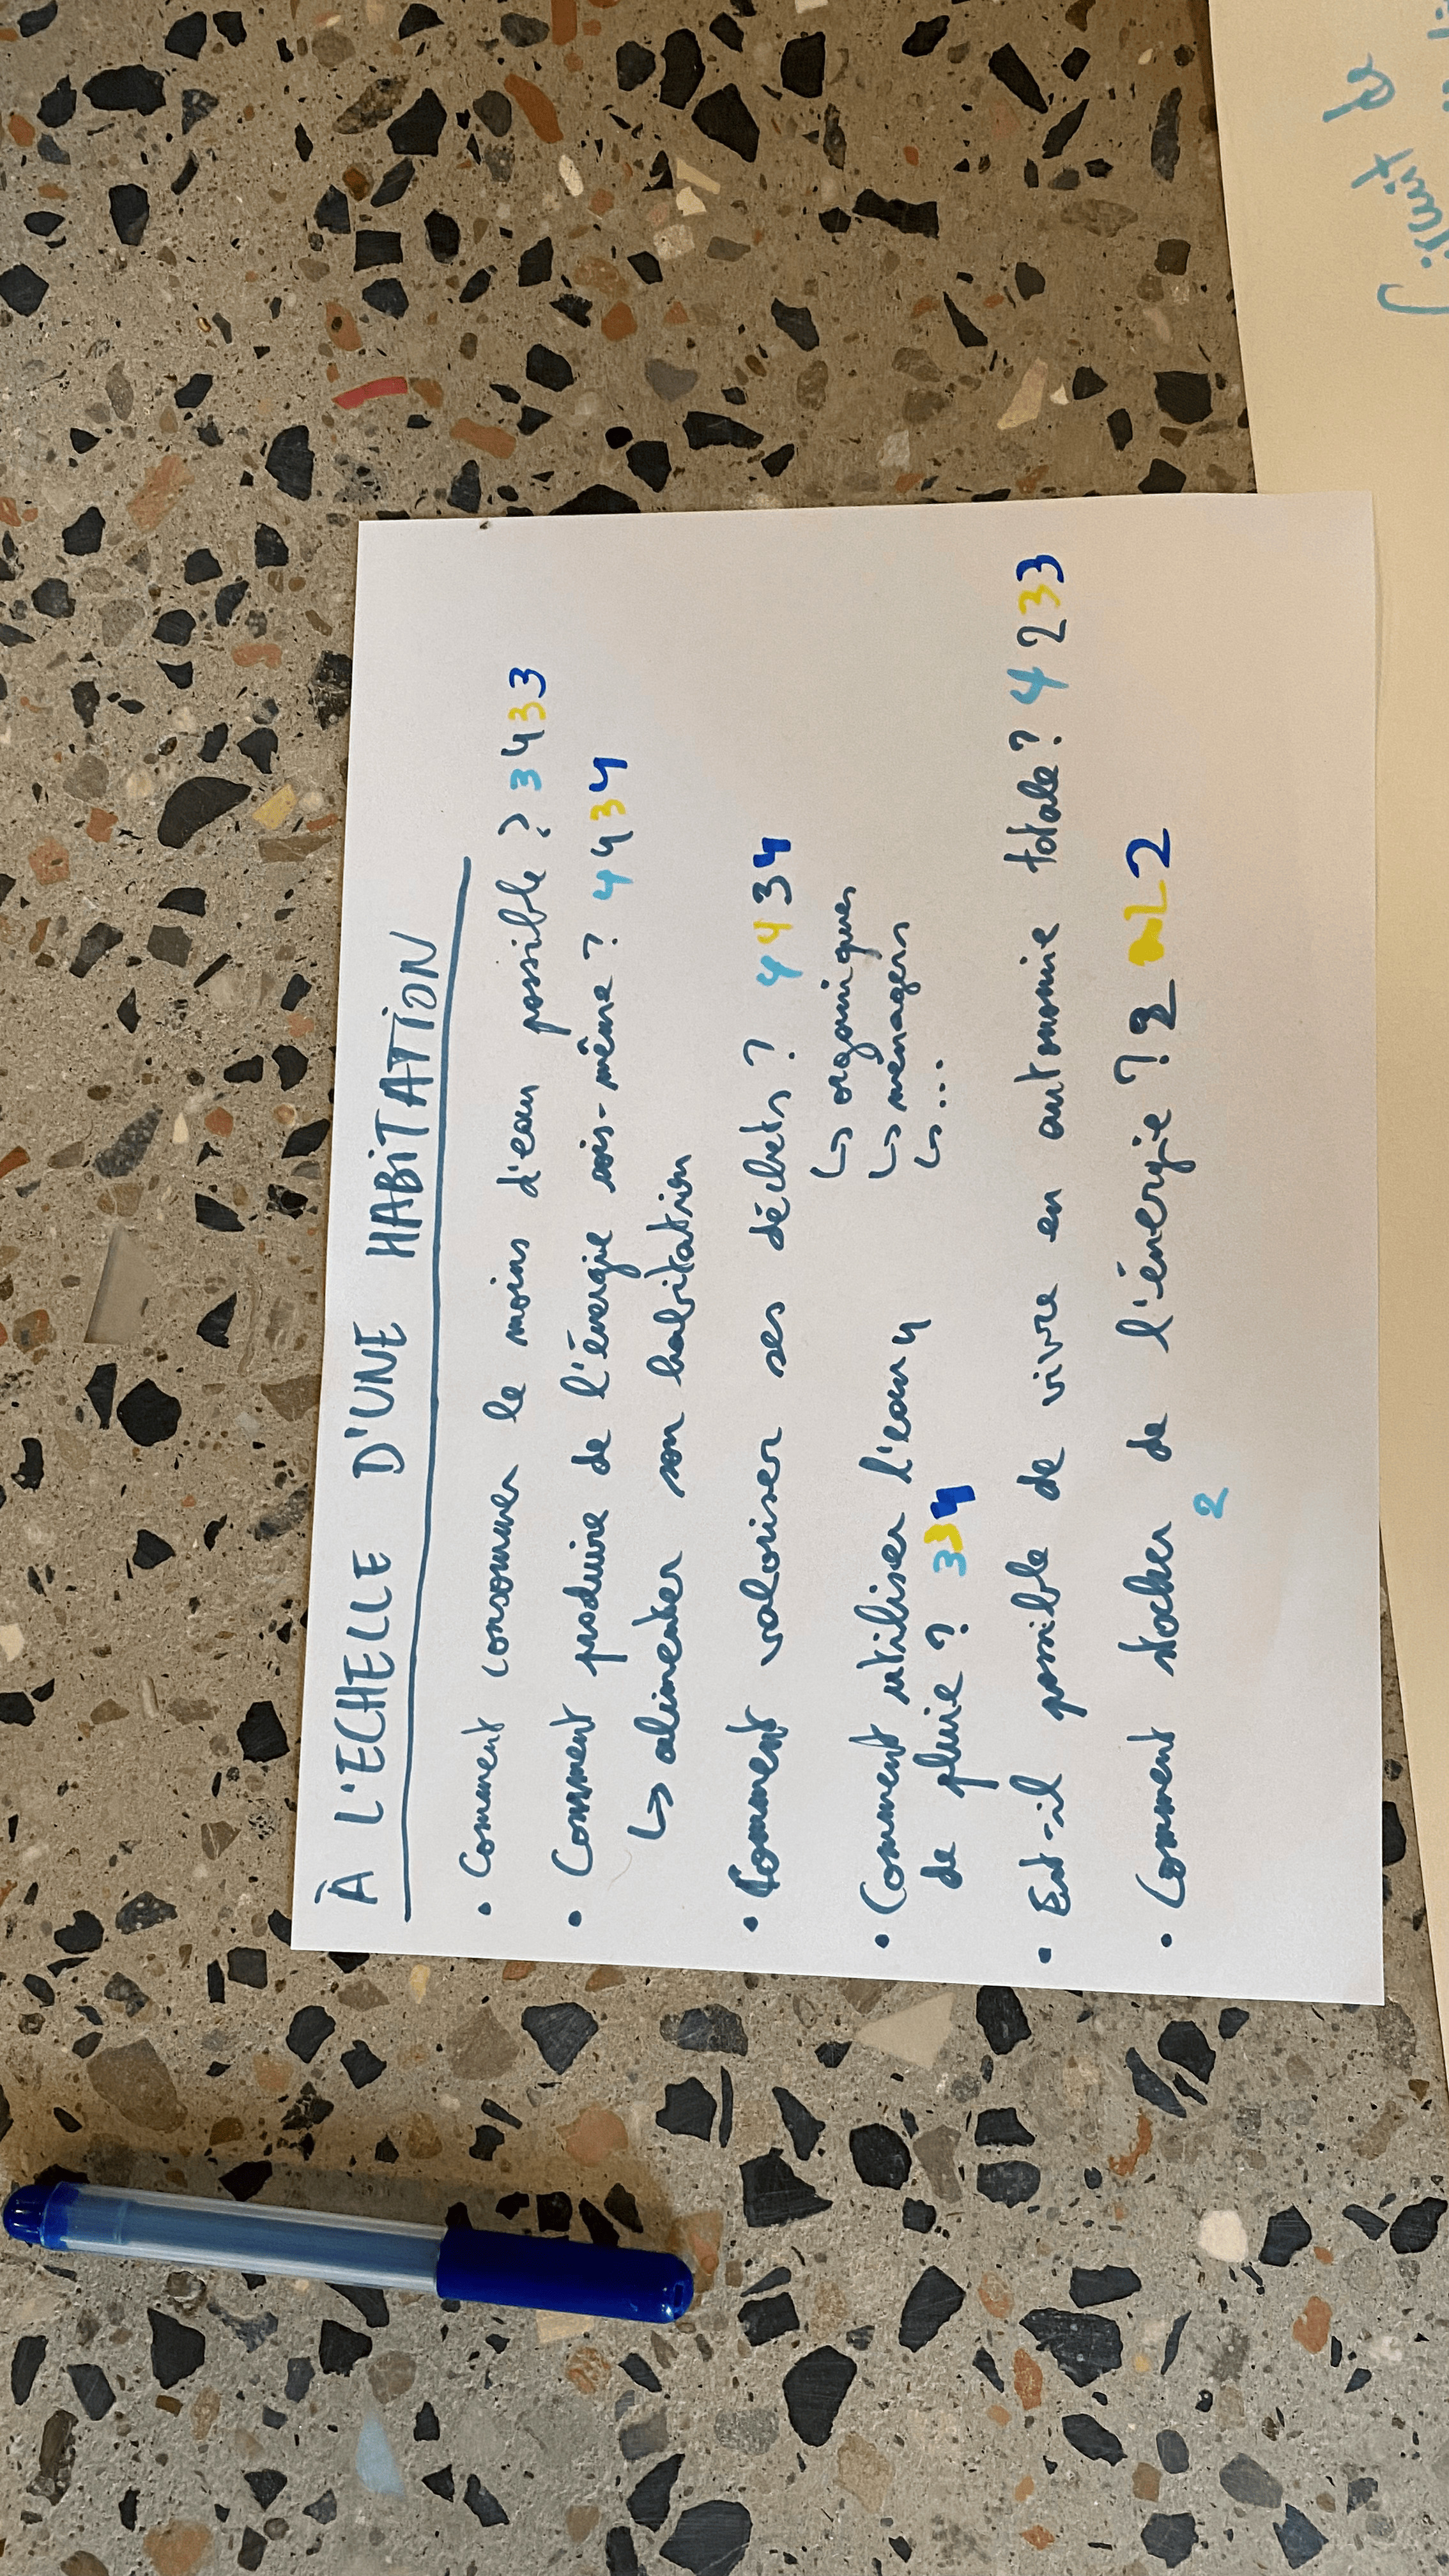 À L'ECHELLE D'UNE HABITATION
• Comment consommer le moins d'eau possible ? 3 4 3 3
• Comment produire de l'énergie sois-même ? 4 4 3 4
↳ alimenter son habitation
• Comment valoriser ses déchets ? 4 4 3 4
↳ organiques
↳ ménagers
↳ ...
• Comment utiliser l'eau 4
de pluie ? 3 3 4
• Est-il possible de vivre en autonomie totale ? 4 2 3 3
• Comment stocker de l'énergie ? 2 2 2
2
Circuit